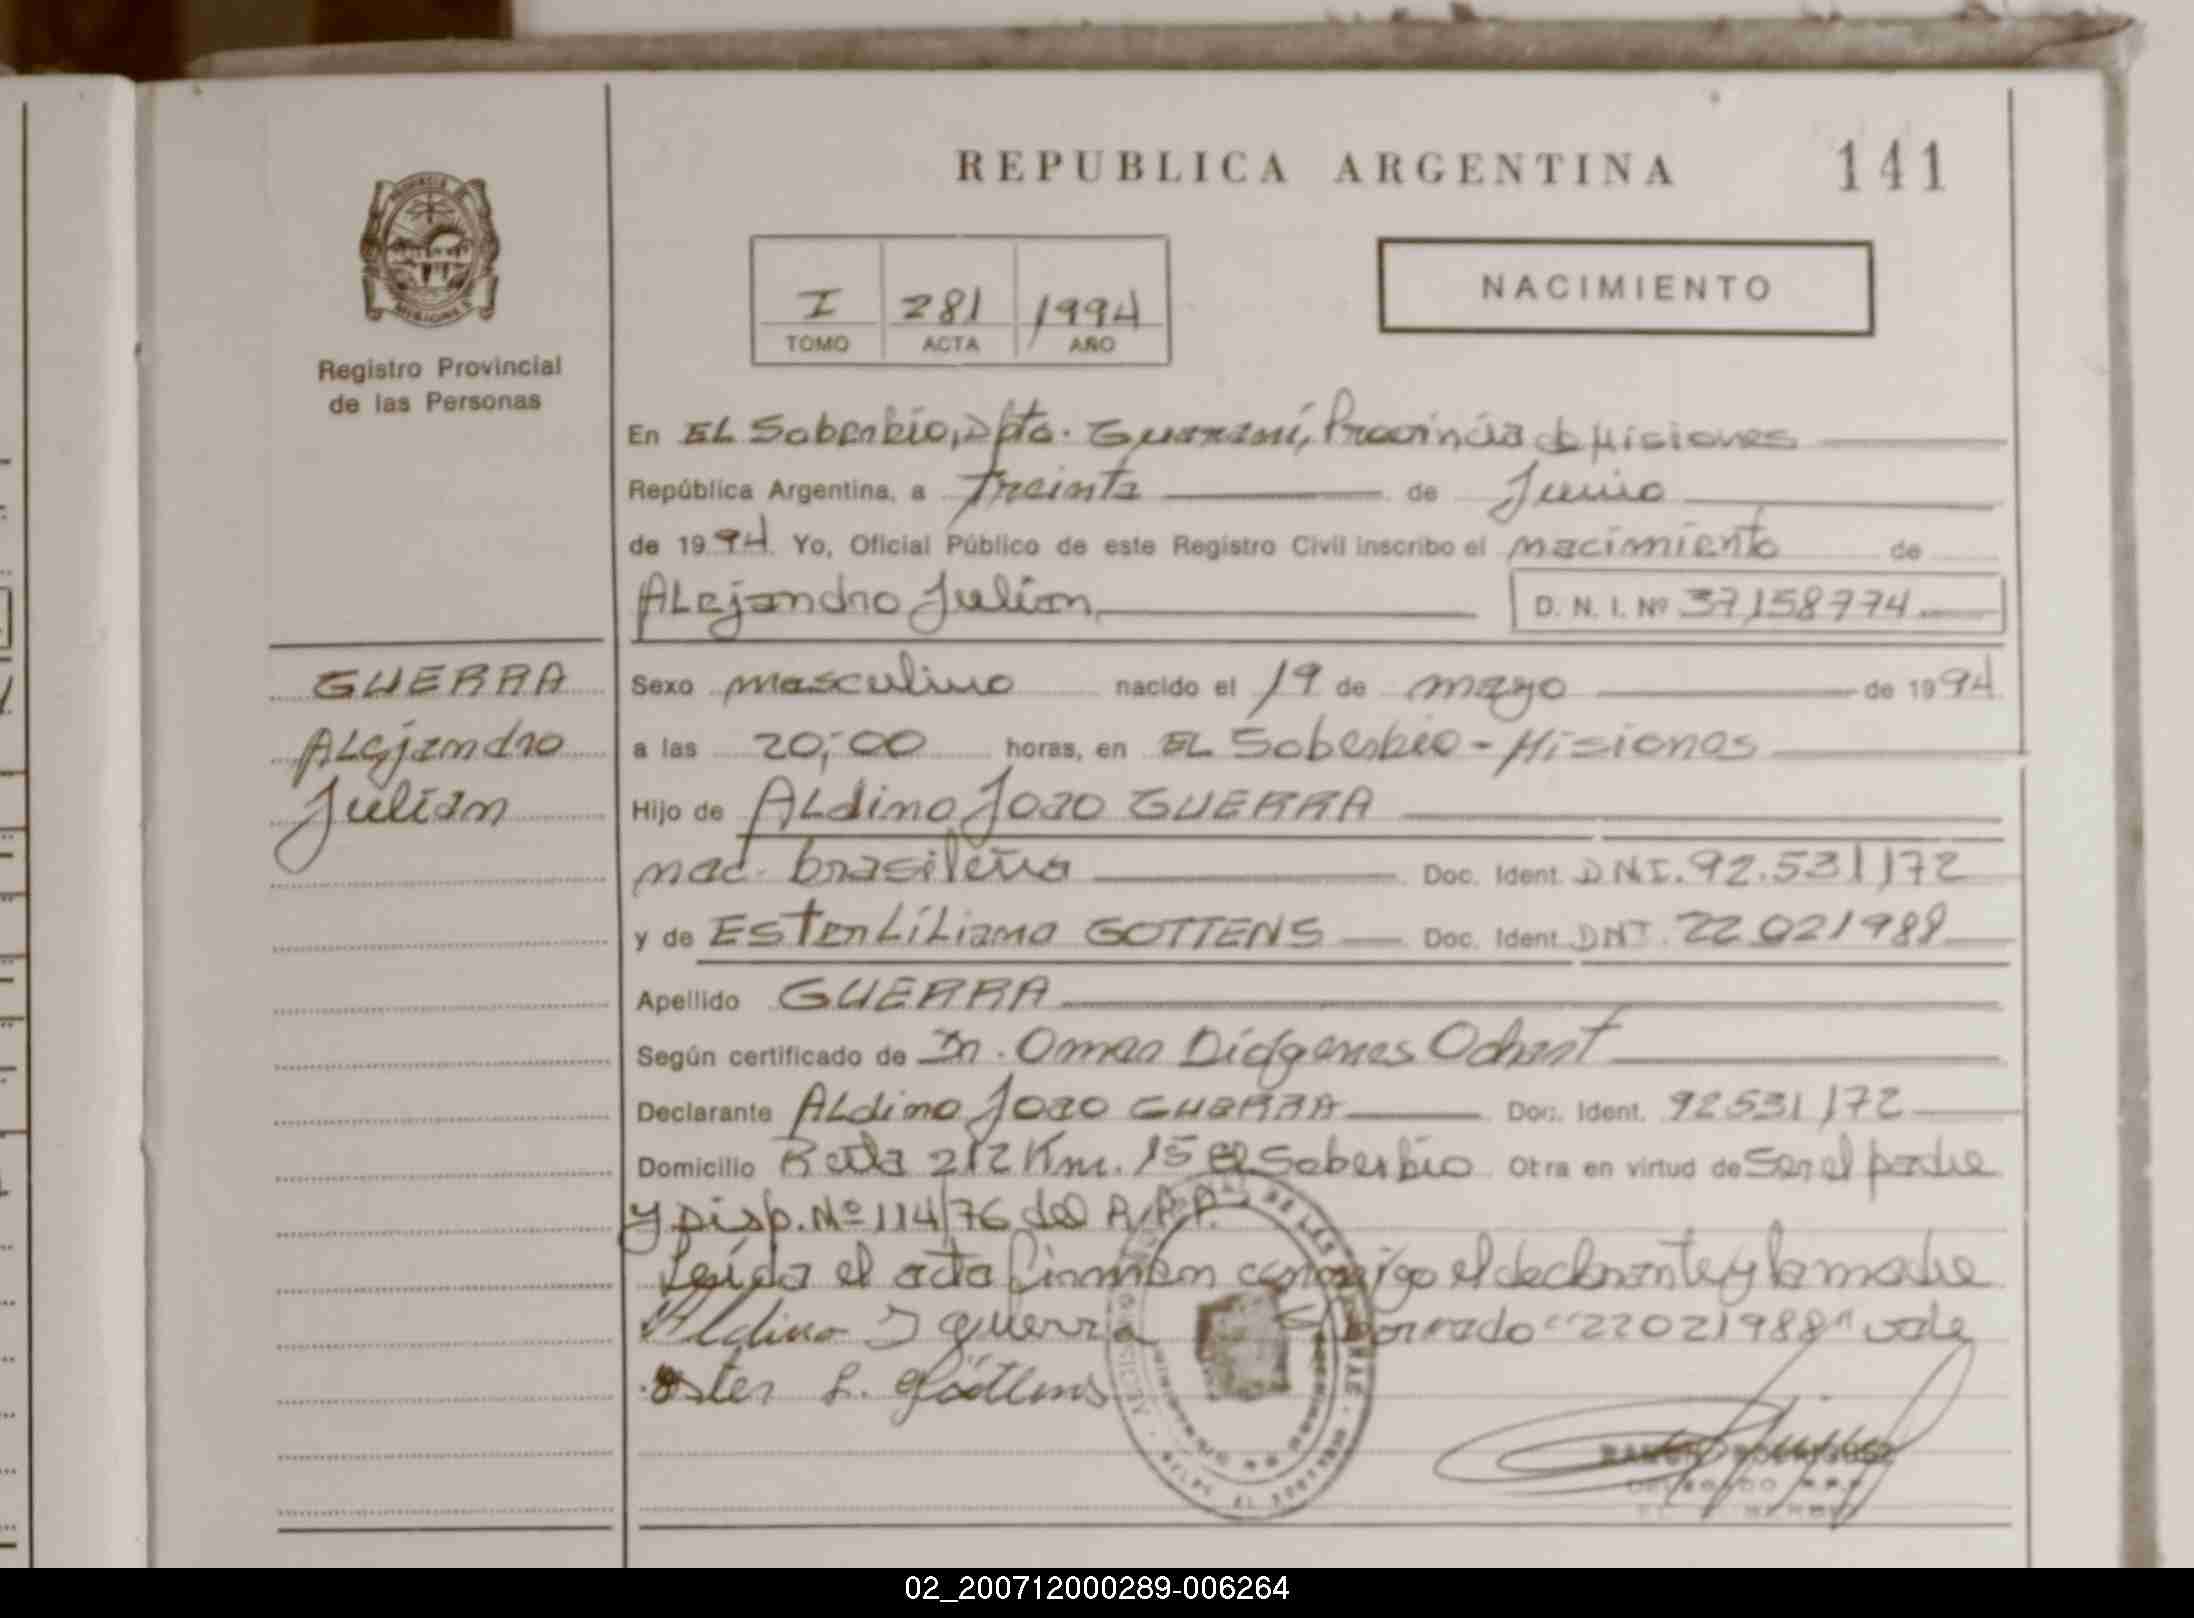 REPUBLICA ARGENTINA
141
I 281 1994
TOMO ACTA AÑO
NACIMIENTO
Registro Provincial
de las Personas
En EL Soberbio, Dpto. Guaraní, Provincia de Misiones
República Argentina, a treinta de Junio
de 1994 Yo, Oficial Público de este Registro Civil inscribo el nacimiento de
ALejandro Julian
D. N. I. Nº 37158774
GUERRA
ALejandro
Julian
Sexo masculino nacido el 19 de mayo de 1994
a las 20,-00 horas, en EL Soberbio - Misiones
Hijo de ALdino Joao GUERRA
nac. brasileña Doc. Ident. DNI. 92.531172
y de ESter LiLiana GOTTENS Doc. Ident. DNI. 22 021988
Apellido GUERRA
Según certificado de Dr. Omar Diógenes
Declarante ALdino Joao GUERRA Doc. Ident. 92531172
Domicilio Ruta 212 Km. 15 El Soberbio Otra en virtud de ser el padre
y Disp. Nº 114/76 del
Leída el acta firman conmigo el declarante y la madre
Aldino J guerra "22021988" vale
ester L. göttems
02_200712000289-006264